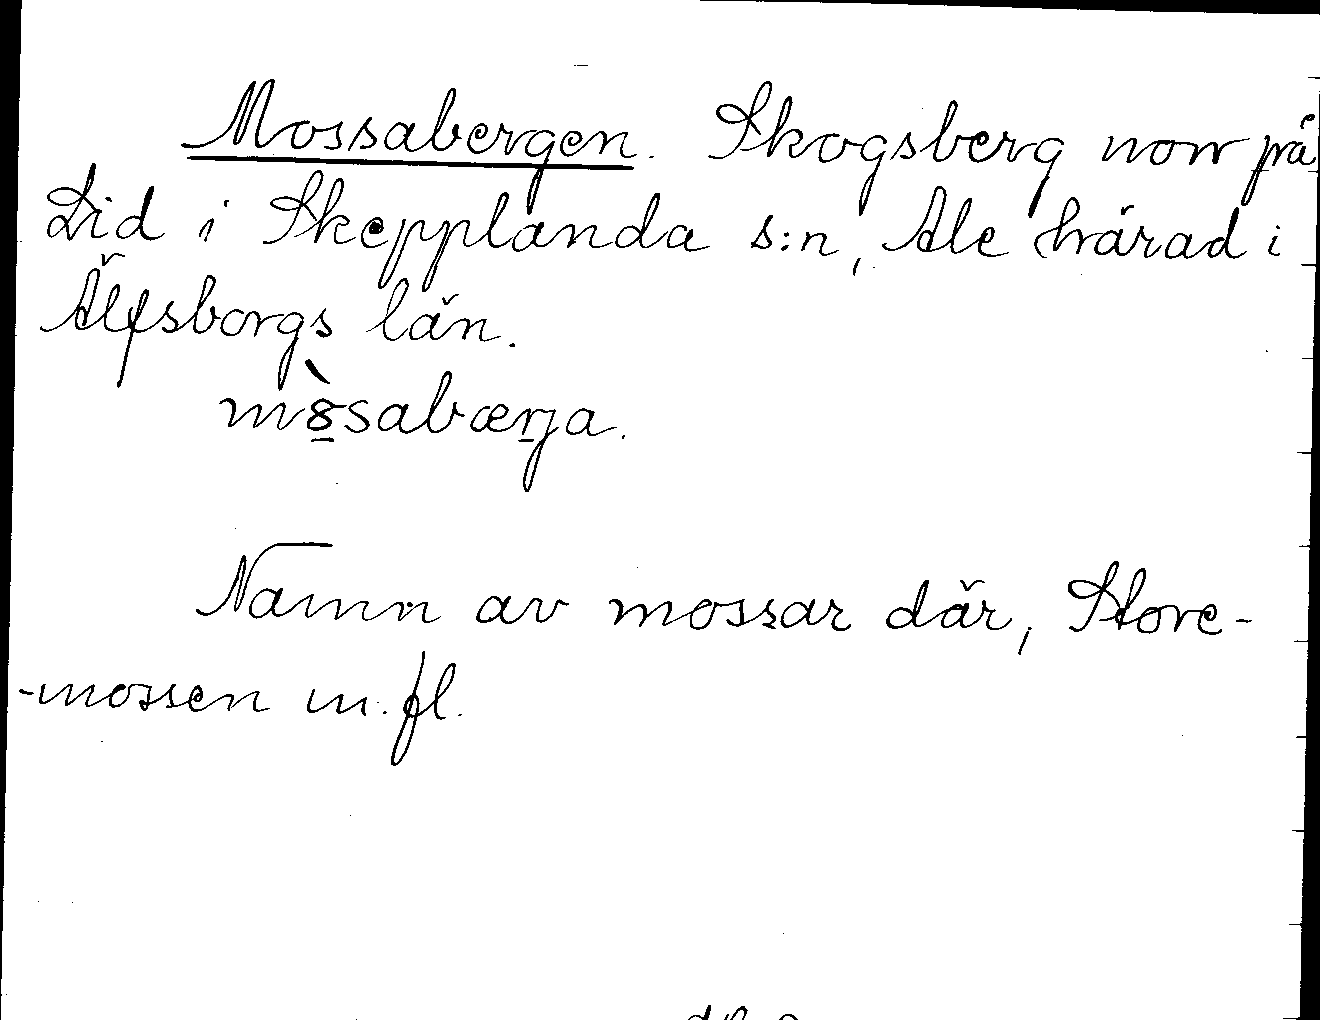 Mossabergen. Skogsberg norr på
Lid i Skepplanda s:n, Ale härad i
Älfsborgs län.
m8̠̀sabærja.
Namn av mossar där, Store-
-mossen m.fl.